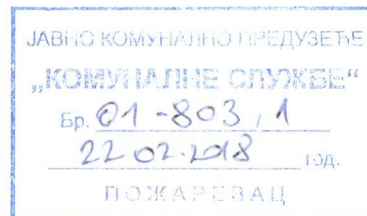 ЈАВНО КОМУНАЛНО ПРЕДУЗЕЋЕ
„КОМУНАЛНЕ СЛУЖБЕ“
Бр. 01-803/1
22.02.2018 год.
ПОЖАРЕВАЦ